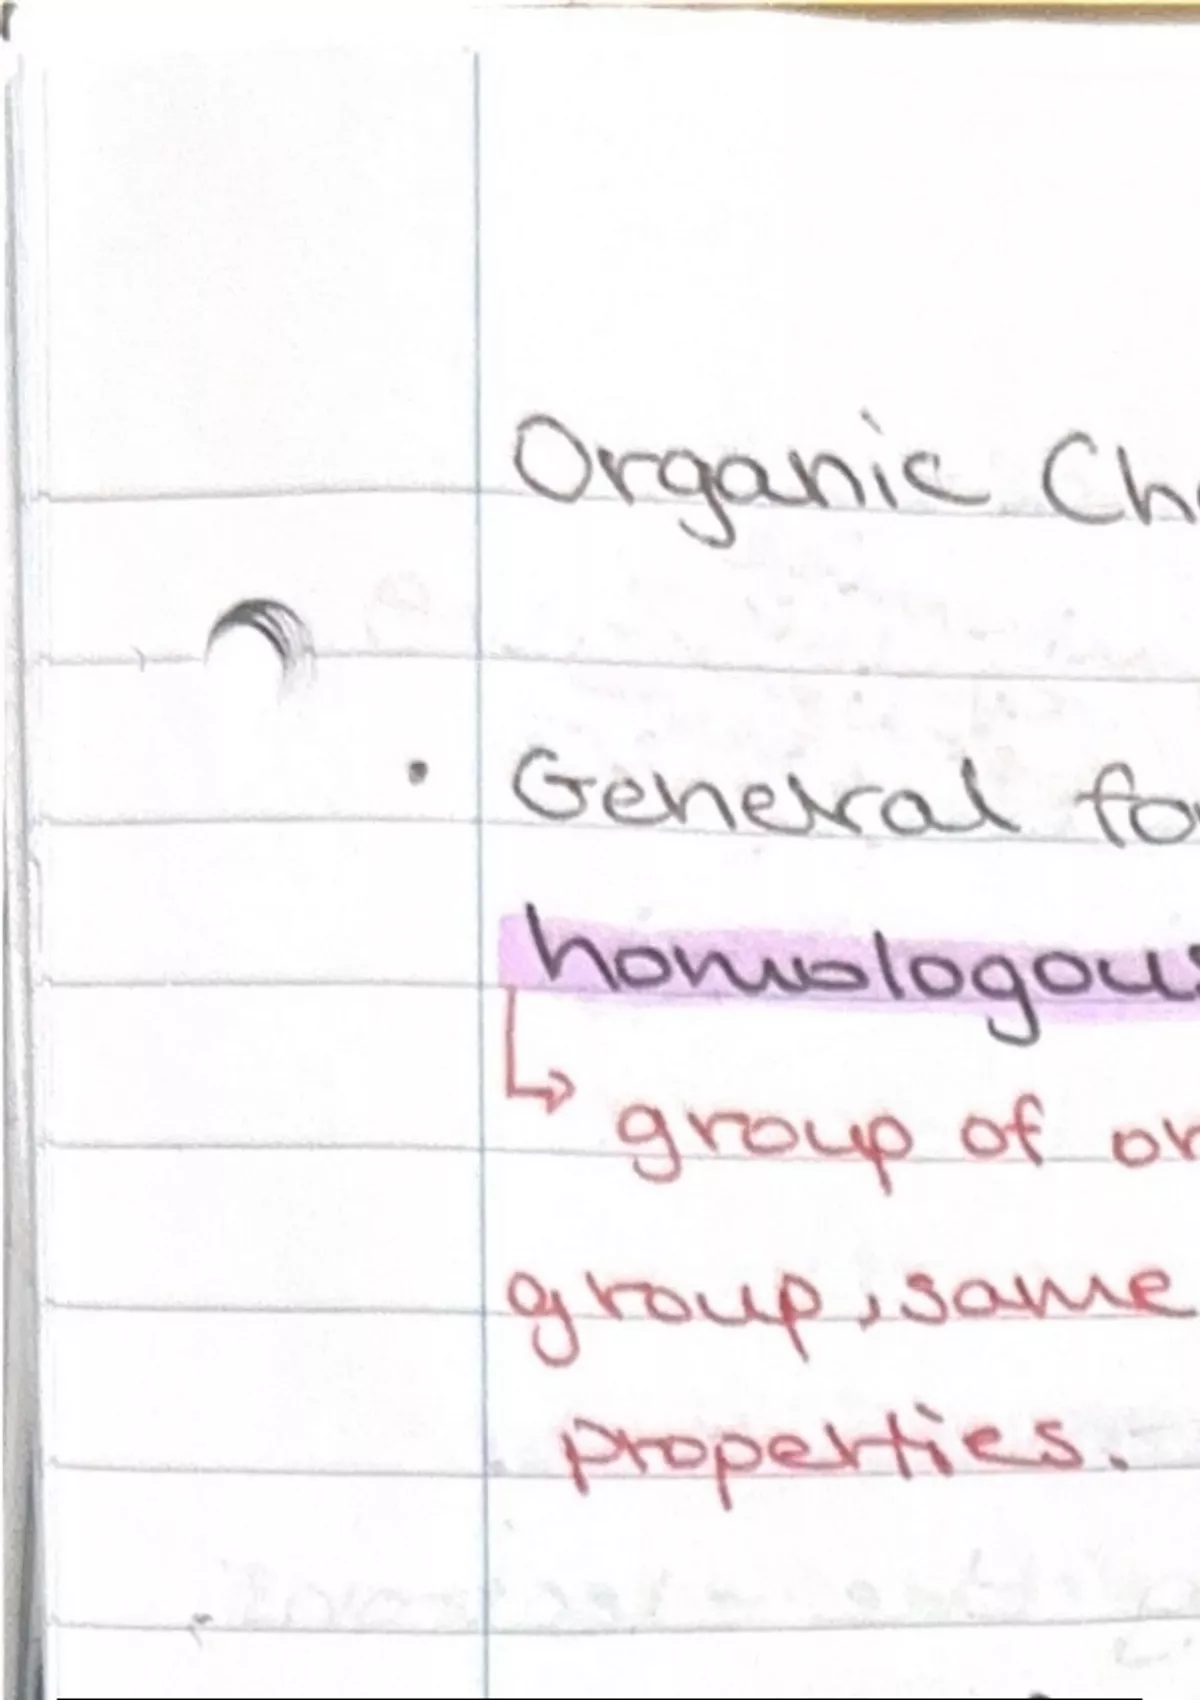 Organic Ch
• General fo
homologous
↳ group of or
group, same
properties.